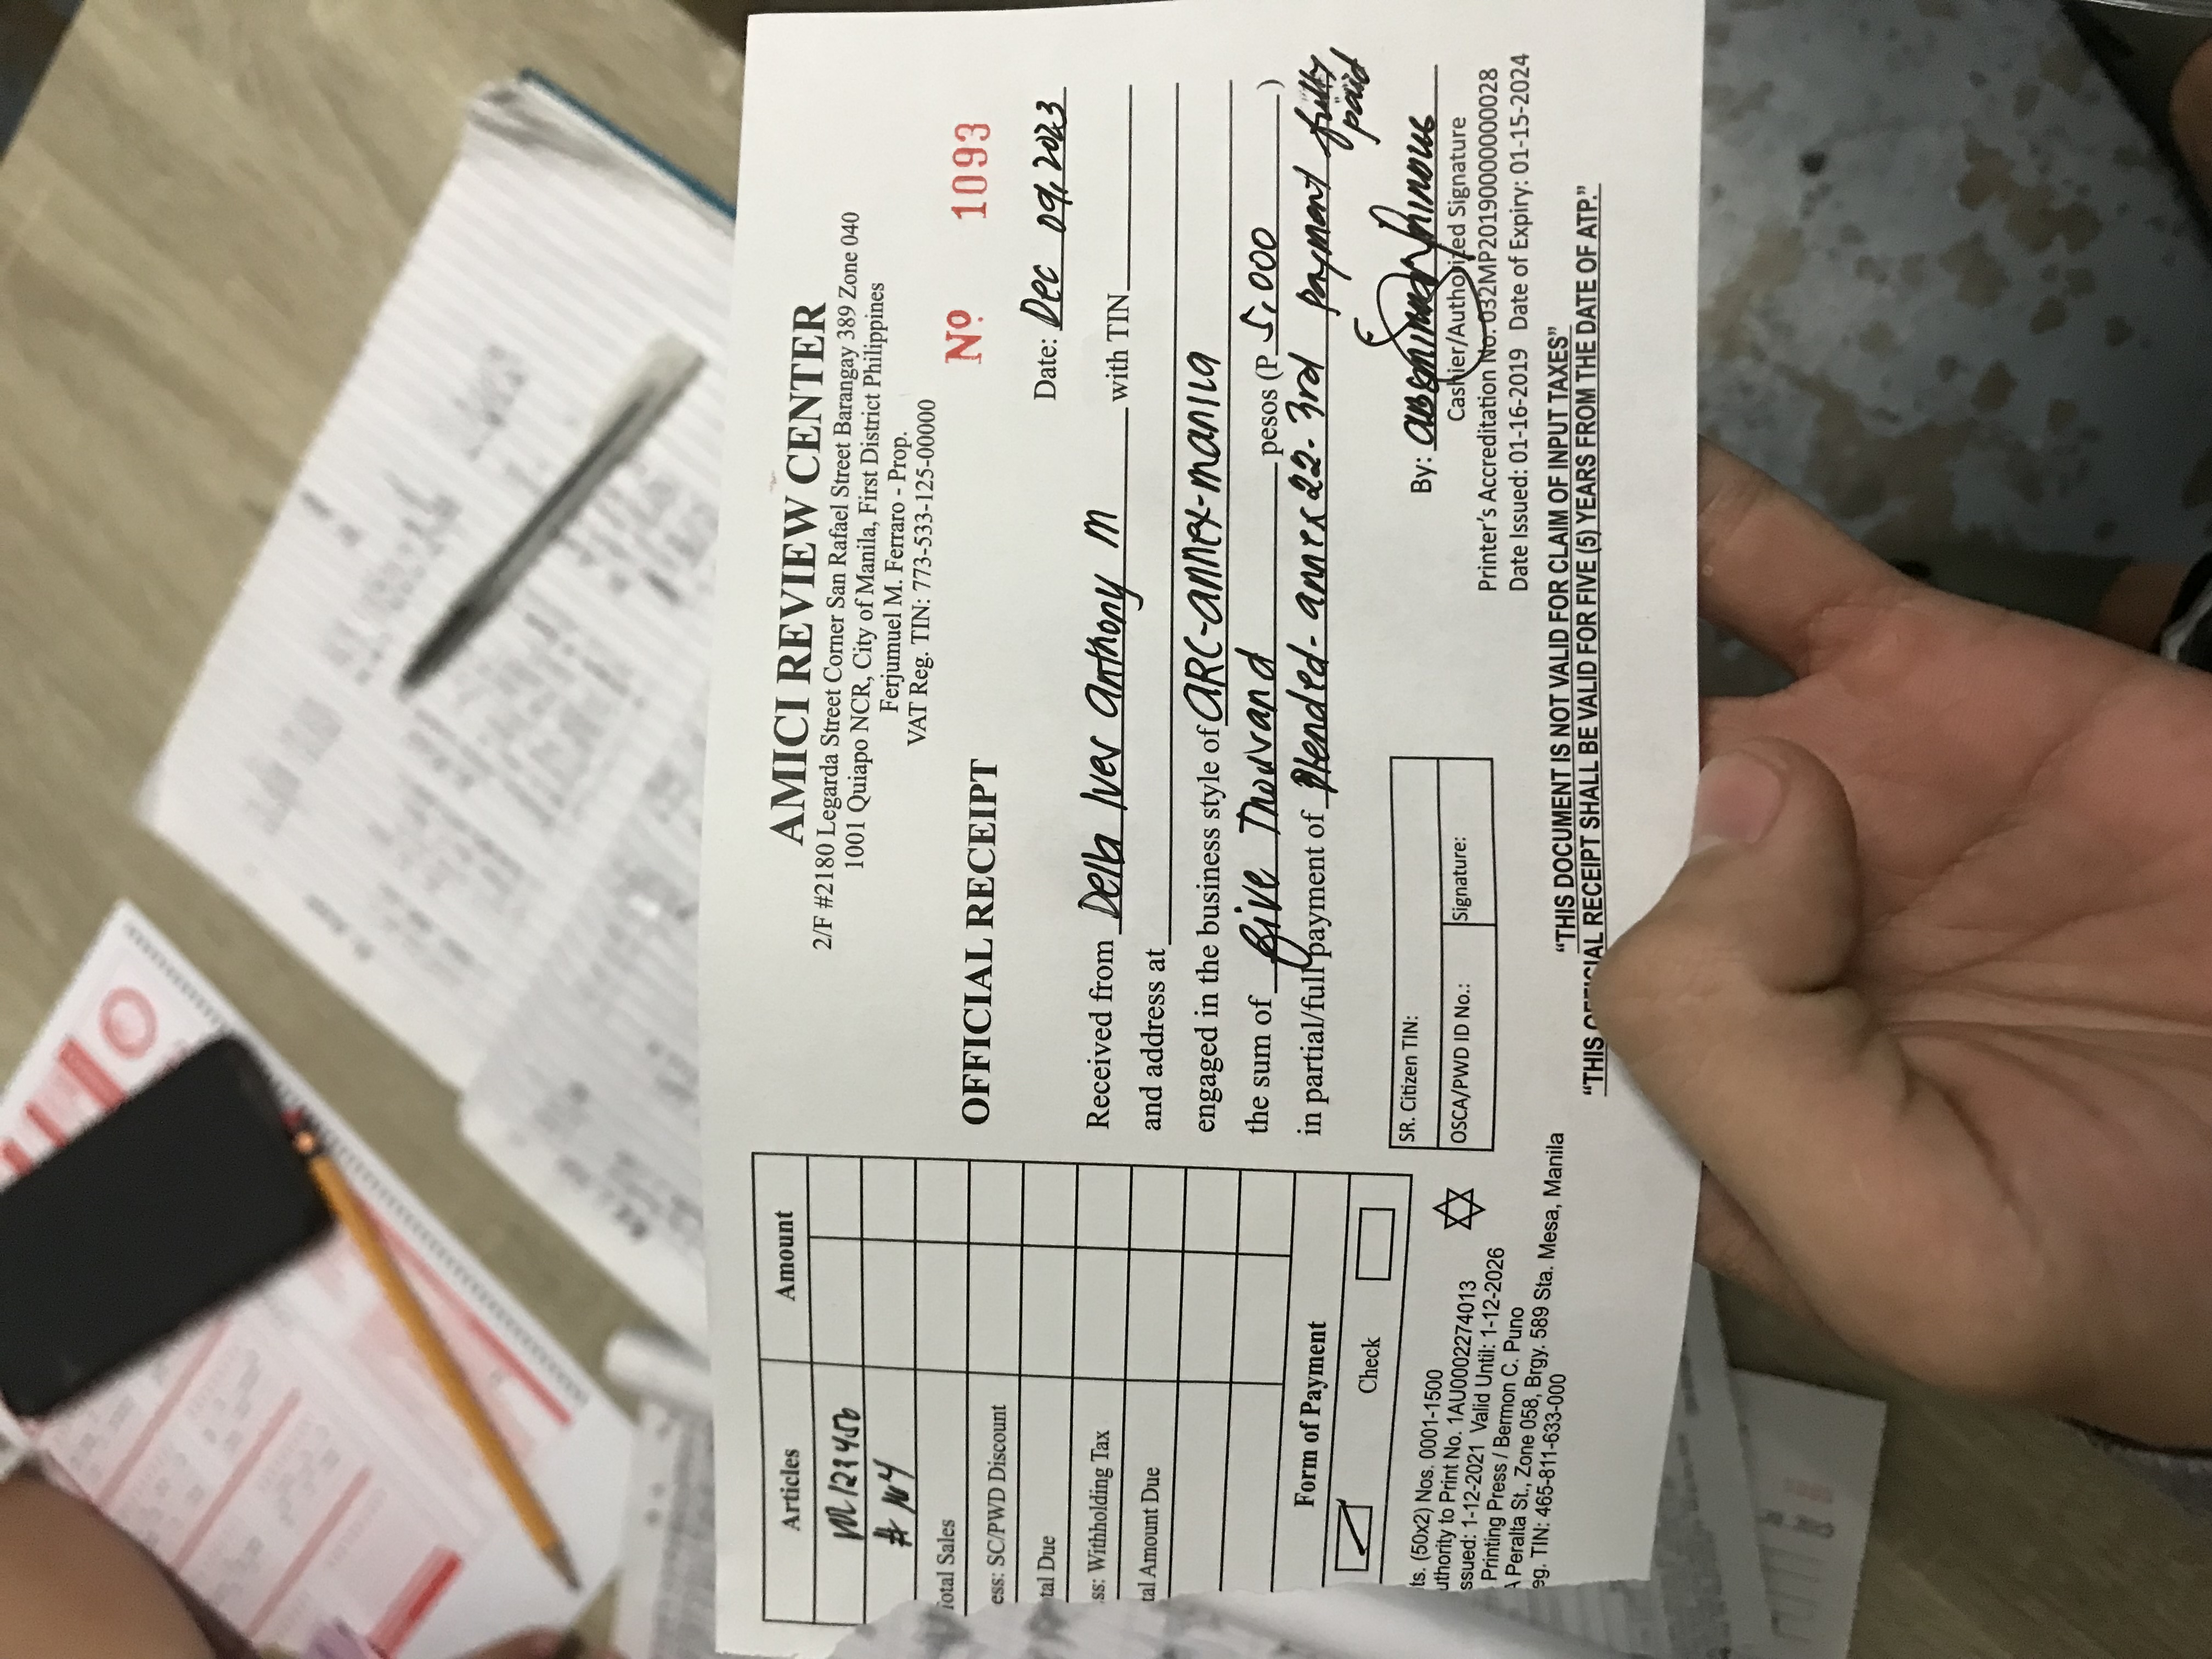 Articles Amount
# 104
Total Sales
ess: SC/PWD Discount
tal Due
ss: Withholding Tax
tal Amount Due
Form of Payment
Check
ts. (50x2) Nos. 0001-1500
uthority to Print No. 1AU0002274013
ssued: 1-12-2021 Valid Until: 1-12-2026
Printing Press / Bermon C. Puno
A Peralta St., Zone 058, Brgy. 589 Sta. Mesa, Manila
eg. TIN: 465-811-633-000
AMICI REVIEW CENTER
2/F #2180 Legarda Street Corner San Rafael Street Barangay 389 Zone 040
1001 Quiapo NCR, City of Manila, First District Philippines
Ferjumuel M. Ferraro - Prop.
VAT Reg. TIN: 773-533-125-00000
OFFICIAL RECEIPT
Nº 1093
Date: Dec 09, 2023
Received from Della Iver Anthony M with TIN
and address at
engaged in the business style of ARC-annex-manila
the sum of five Thousand pesos (P 5,000 )
in partial/full payment of Blended- annex 22- 3rd payment fully
paid
SR. Citizen TIN:
OSCA/PWD ID No.: Signature:
By:
Cashier/Authorized Signature
Printer's Accreditation No. 032MP20190000000028
Date Issued: 01-16-2019 Date of Expiry: 01-15-2024
"THIS DOCUMENT IS NOT VALID FOR CLAIM OF INPUT TAXES"
"THIS OFFICIAL RECEIPT SHALL BE VALID FOR FIVE (5) YEARS FROM THE DATE OF ATP."